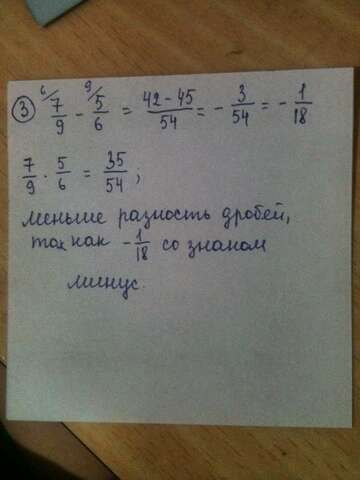 ③ ⁶/7/9 - ⁹/5/6 = 42-45/54 = - 3/54 = - 1/18
7/9 · 5/6 = 35/54,
меньше разность дробей,
так как - 1/18 со знаком
минус.